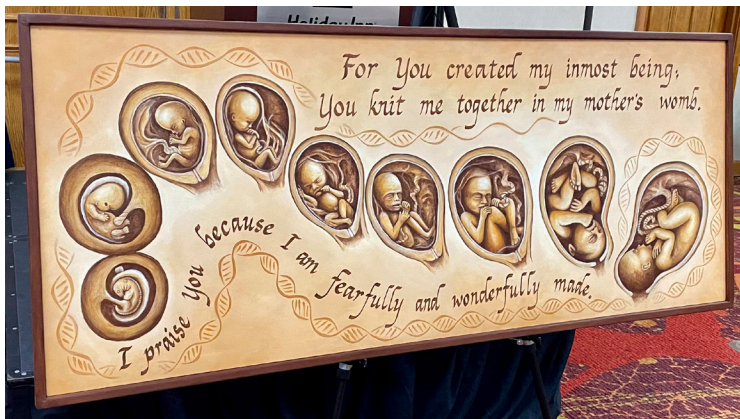 Holiday Inn
For You created my inmost being;
You knit me together in my mother's womb.
I praise You because I am fearfully and wonderfully made.